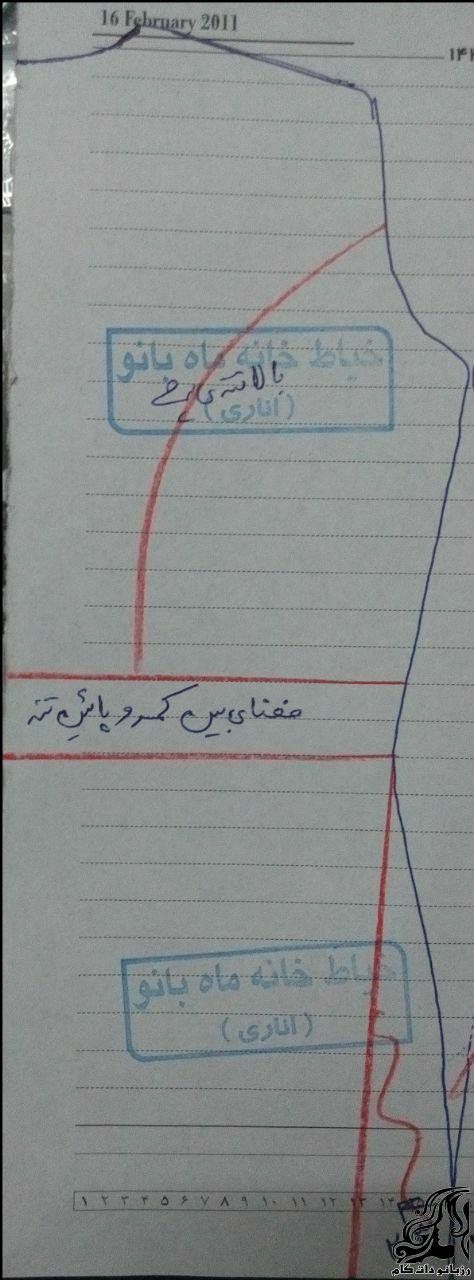 16 February 2011
خیاط خانه ماه بانو
بالاتنه
(اناری)
فضای بین کمر و پائین تنه
خیاط خانه ماه بانو
(اناری)
۱ ۲ ۳ ۴ ۵ ۶ ۷ ۸ ۹ ۱۰ ۱۱ ۱۲ ۱۳
رزبانو دات کام